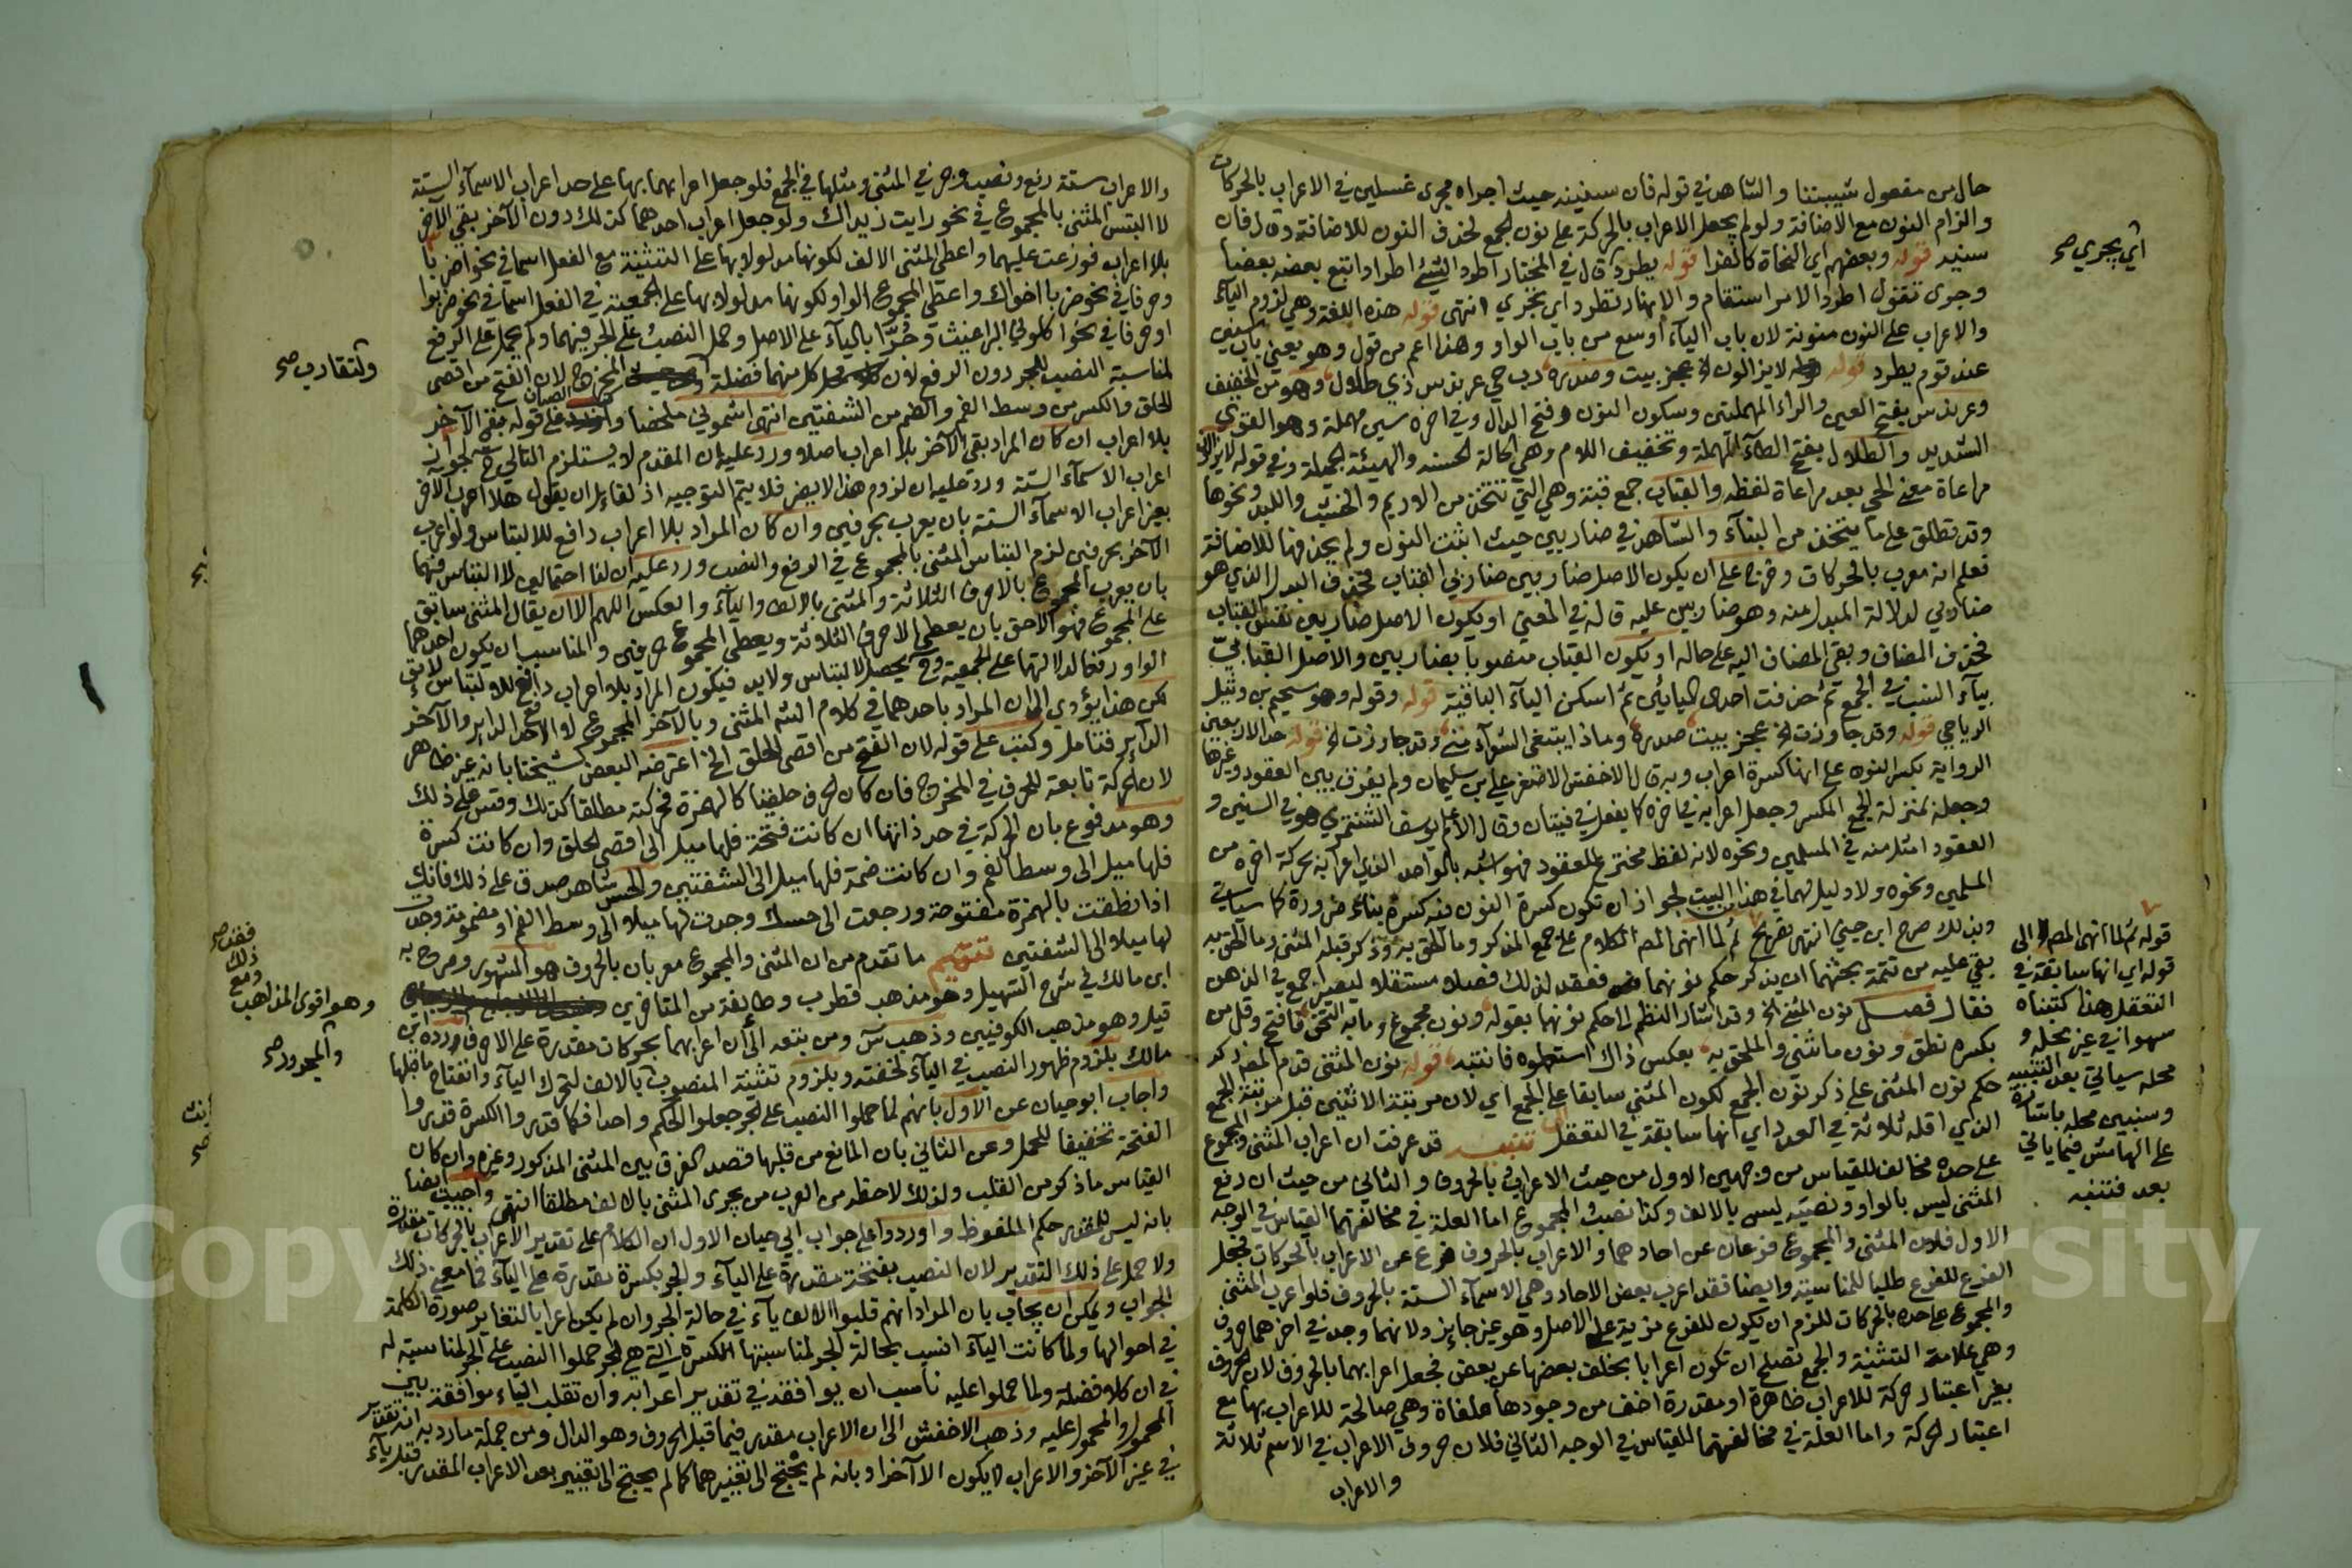 حال من مفعول شيبننا والشاهد في قوله فان سنينه حيث اجراه مجرى غسلين في الاعراب بالحركات
والزام النون مع الاضافة ولو لم يجعل الاعراب بالحركة على نون الجمع لحذف النون للاضافة وقال فان
سنيه قوله وبعضهم اي النحاة كالفرا قوله يطرد قال في المختار اطرد الشئ اطرادا تبع بعضه بعضا
وجرى تقول اطرد الامر استقام والانهار تطرد اي تجري انتهى قوله هذه اللغة وهي لزوم الياء
والاعراب على النون منونة لان باب الياء اوسع من باب الواو وهذا اعم من قول وهو يعني باب سنين
عند قوم يطرد قوله لايزالون الخ عجز بيت وصدره رب حي عرندس ذي طلال وهو من الخفيف
وعرندس بفتح العين والراء المهملتين وسكون النون وفتح الدال وفي اخره سين مهملة وهو القوي
الشديد والطلال بفتح الطاء المهملة وتخفيف اللام وهي الحالة الحسنة والهيئة الجميلة وفي قوله لايزالون
مراعاة معنى الحي بعد مراعاة لفظه والقباب جمع قبة وهي التي تتخذ من الاديم والخشب واللبد ونحوها
وقد تطلق على ما يتخذ من البناء والشاهد في ضاربين حيث اثبت النون ولم يحذفها للاضافة
فعلم انه معرب بالحركات وخرج على ان يكون الاصل ضاربين ضاربي القباب فحذف البدل الذي هو
ضاربي لدلالة المبدل منه وهو ضاربين عليه قاله في المغني او يكون الاصل ضاربين القباب
فحذف المضاف وبقى المضاف اليه على حاله او يكون القباب منصوبا بضاربين والاصل القبابيّ
بياء النسب في الجمع ثم حذفت احدى اليائين ثم اسكن الياء الباقية قوله وقوله وهو سحيم بن وثيل
الرياحي قوله وقد جاوزت الخ عجز بيت صدره وماذا يبتغي الشعراء مني وقد جاوزت الخ قوله حد الاربعين
الرواية بكسر النون على انها كسرة اعراب وبه قال الاخفش الاصغر علي بن سليمان ولم يفرق بين العقود وغيرها
وجعله بمنزلة الجمع المكسر وجعل اعرابه في اخره كما يفعل في فتيان وقال الاعلم يوسف الشنتمري هو في السنين و
العقود امثل منه في المسلمين ونحوه لانه لفظ مخترع للعقود فهو اشبه بالواحد الذي اعرابه بحركة اخره من
المسلمين ونحوه ولا دليل لهما في هذا البيت لجواز ان تكون كسرة النون فيه كسرة بناء ضرورة كما سيأتي
وبذلك صرح ابن جني انتهى تصريح ثم لما انهى المص الكلام على جمع المذكر وما الحق به وذكر قبله المثنى وما الحق به
بقي عليه من تتمة بحثهما ان يذكر حكم نونهما فعقد لذلك فصلا مستقلا ليصير اجمع في الذهن
فقال فصل نون المثنى الخ وقد اشار الناظم الى حكم نونهما بقوله ونون مجموع وما به التحق فافتح وقل من
بكسره نطق ونون ما ثني والملحق به بعكس ذاك استعملوه فانتبه قوله نون المثنى قدم المص ذكر
حكم نون المثنى على ذكر نون الجمع لكون المثنى سابقا على الجمع اي لان مرتبة الاثنين قبل مرتبة الجمع
الذي اقله ثلاثة في العدد اي انها سابقة في التعقل تنبيه قد عرفت ان اعراب المثنى والمجموع
على حده مخالف للقياس من وجهين الاول من حيث الاعراب بالحروف والثاني من حيث ان رفع
المثنى ليس بالواو ونصبه ليس بالالف وكذا نصب المجموع اما العلة في مخالفتهما القياس في الوجه
الاول فلان المثنى والمجموع فرعان عن احادهما والاعراب بالحروف فرع عن الاعراب بالحركات فجعل
الفرع للفرع طلبا للمناسبة وايضا فقد اعرب بعض الاحاد وهي الاسماء الستة بالحروف فلو اعرب المثنى
والمجموع على حده بالحركات للزم ان يكون للفرع مزية على الاصل وهو غير جايز ولانهما وجد في اخرهما حروف
وهي علامة التثنية والجمع تصلح ان تكون اعرابا بخلف بعضها عن بعض فجعل اعرابهما بالحروف لان الحروف
بغير اعتبار حركة للاعراب ظاهرة او مقدرة اخف من وجودها ملغاة وهي صالحة للاعراب بها مع
اعتبار الحركة واما العلة في مخالفتهما للقياس في الوجه الثاني فلان حروف الاعراب في الاسم ثلاثة
والاعراب
اي يجري صح
قوله ثم لما انهى المص الى
قوله اي انها سابقة في
التعقل هذا كتبناه
سهوا في غير محله و
محله سياتي بعد التنبيه
وسنبين محله باشارة
على الهامش فيما ياتي
بعد فتنبه
والاعراب ستة رفع ونصب وجر في المثنى ومثلها في الجمع فلو جعل اعرابهما بها على حد اعراب الاسماء الستة
لالتبس المثنى بالمجموع في نحو رايت زيداك ولو جعل اعراب احدهما كذلك دون الآخر بقي الآخر
بلا اعراب فوزعت عليهما واعطي المثنى الالف لكونها مدلولا بها على التثنية مع الفعل اسما في نحو اضربا
وحرفا في نحو ضربا اخواك واعطي المجموع الواو لكونها مدلولا بها على الجمعية في الفعل اسما في نحو اضربوا
او حرفا في نحو اكلوني البراغيث وجُرّا بالياء على الاصل وحمل النصب على الجر فيهما ولم يحمل على الرفع
لمناسبة النصب للجر دون الرفع لان كلا منهما فضلة المخرج لان الفتح من اقصى
الحلق والكسر من وسط الفم والضم من الشفتين انتهى اشموني ملخصا و الصبان على قوله بقي الآخر
بلا اعراب ان كان المراد بقي الآخر بلا اعراب اصلا ورد عليه ان المقدم لا يستلزم التالي لجواز
اعراب الاسماء الستة ورد عليه ان لزوم هذا لا يضر فلا يتم التوجيه اذ لقائل ان يقول هلا اعرب الآخر
بغير اعراب الاسماء الستة بان يعرب بحرفين وان كان المراد بلا اعراب دافع للالتباس ولو اعرب
الآخر بحرفين لزم التباس المثنى بالمجموع في الرفع والنصب ورد عليه ان لنا احتمالين لا التباس فيهما
بان يعرب المجموع بالاحرف الثلاثة والمثنى بالالف والياء والعكس اللهم الا ان يقال المثنى سابق
على المجموع فهو الاحق بان يعطى الاحرف الثلاثة ويعطى المجموع حرفين والمناسب ان يكون احدهما
الواو رفعا لدلالتها على الجمعية وح يحصل الالتباس ولابد فيكون المراد بلا اعراب دافع للالتباس لائق
لكن هذا يؤدي الى ان المراد باحدهما في كلام الشم المثنى وبالآخر المجموع لا الاحد الداير والآخر
الداير فتامل وكتب على قوله لان الفتح من اقصى الحلق الخ اعترضه البعض كشيخنا بانه غير ظاهر
لان الحركة تابعة للحرف في المخرج فان كان الحرف حلقيا كالهمزة فحركته مطلقا كذلك وقس على ذلك
وهو مدفوع بان الحركة في حد ذاتها ان كانت فتحة فلها ميل الى اقصى الحلق وان كانت كسرة
فلها ميل الى وسط الفم وان كانت ضمة فلها ميل الى الشفتين والحس شاهد صدق على ذلك فانك
اذا نطقت بالهمزة مفتوحة ورجعت الى حسك وجدت لها ميلا الى وسط الفم او مضمومة وجدت
لها ميلا الى الشفتين تتميم ما تقدم من ان المثنى والمجموع معربان بالحروف هو المشهور وصرح به
ابن مالك في شرح التسهيل وهو مذهب قطرب وطائفة من المتاخرين
قيل وهو مذهب الكوفيين وذهب س ومن تبعه الى ان اعرابهما بحركات مقدرة على الاحرف ورده ابن
مالك بلزوم ظهور النصب في الياء لخفته وبلزوم تثنية المنصوب بالالف لتحرك الياء وانفتاح ما قبلها
واجاب ابو حيان عن الاول بانهم لما حملوا النصب على الجر جعلوا الحكم واحدا فكما قدروا الكسرة قدروا
الفتحة تخفيفا للحمل وعن الثاني بان المانع من قلبها قصد الفرق بين المثنى المذكور وغيره وان كان
القياس ما ذكر من القلب ولذلك لاحظه من العرب من يجري المثنى بالالف مطلقا انتهى واجيب ايضا
بانه ليس للمقدر حكم الملفوظ واوردوا على جواب ابي حيان الاول ان الكلام على تقدير الاعراب بالحركات مقدرة
ولا حمل على ذلك التقدير لان النصب بفتحة مقدرة على الياء والجر بكسرة مقدرة على الياء فما معنى ذلك
الجواب ويمكن ان يجاب بان المراد انهم قلبوا الالف ياء في حالة الجر وان لم يكن اعرابا لتغاير صورة الكلمة
في احوالها ولما كانت الياء انسب بحالة الجر لمناسبتها الكسرة التي هي للجر حملوا النصب على الجر لمناسبته له
في ان كلا فضلة ولما حملوا عليه ناسب ان يوافقه في تقدير اعرابه وان تقلب الياء موافقة بين
المحمول والمحمول عليه وذهب الاخفش الى ان الاعراب مقدر فيما قبل الحروف وهو الدال ومن جملة ما رد به انه تقدير
في غير الآخر والاعراب لا يكون الا آخرا وبانه لم يحتج الى تغييرهما كما لم يحتج الى تغيير بعد الاعراب المقدر قبل ياء
ولتقارب صح
فقد صح
ذلك
ومع
وهو اقوى المذاهب
والمجرور صح